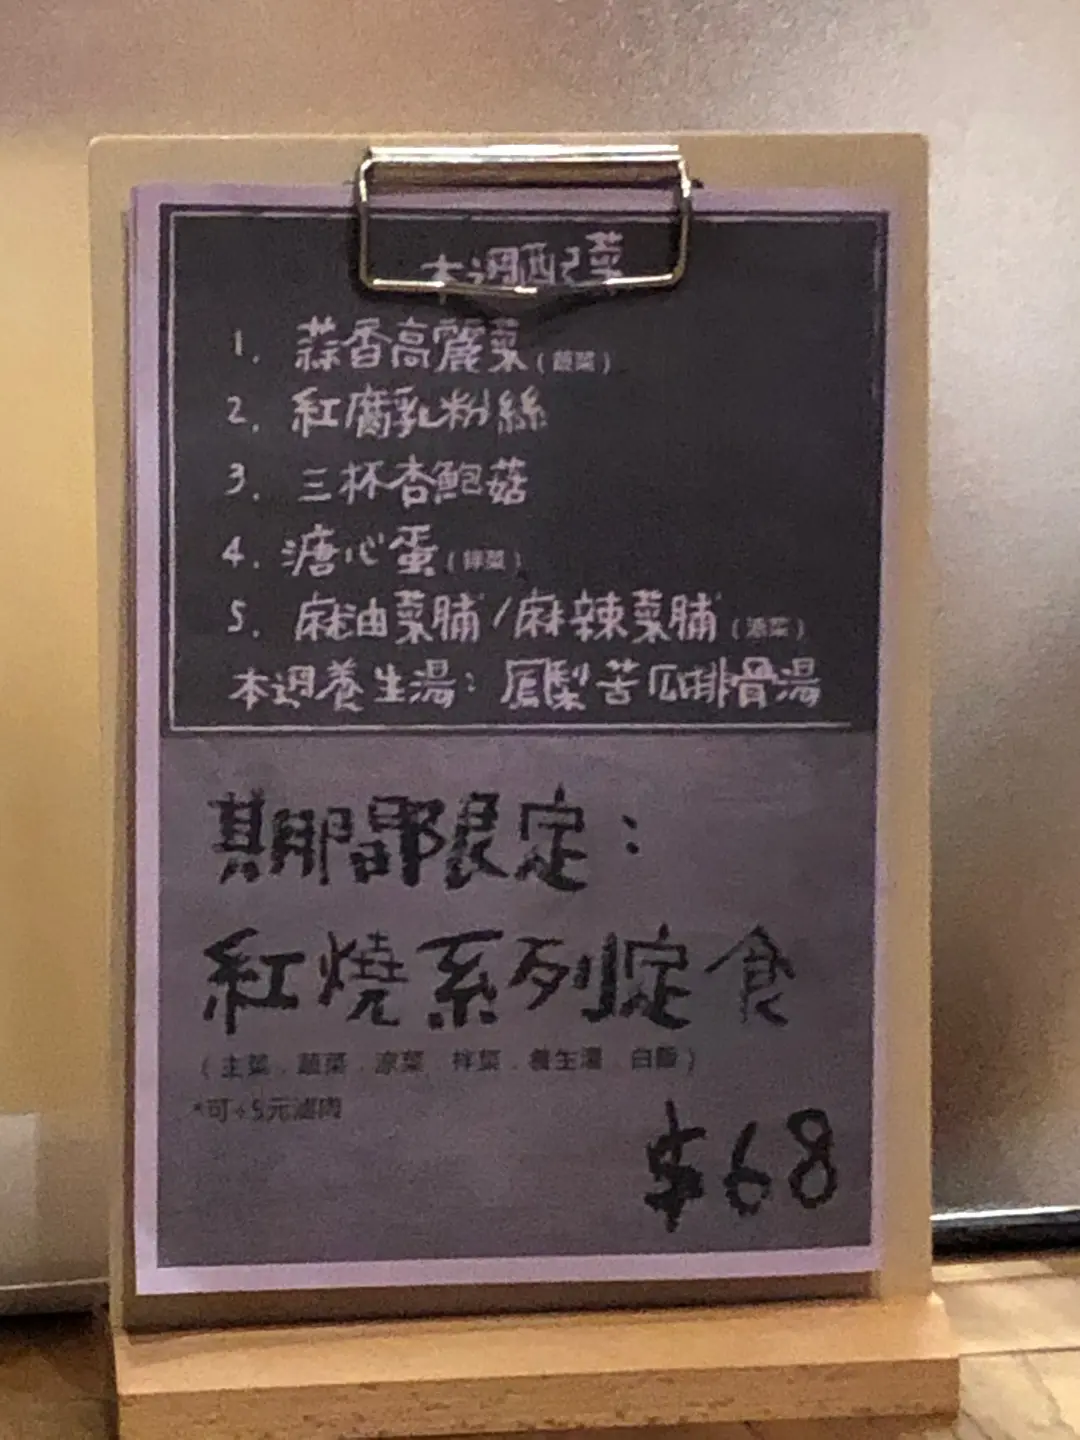 本週配菜
1. 蒜香高麗菜(蔬菜)
2. 紅腐乳粉絲
3. 三杯杏鮑菇
4. 溏心蛋(拌菜)
5. 麻油菜脯/麻辣菜脯(涼菜)
本週養生湯:鳳梨苦瓜排骨湯
期間限定:
紅燒系列定食
(主菜.蔬菜.涼菜.拌菜.養生湯.白飯)
*可+5元滷肉
$68